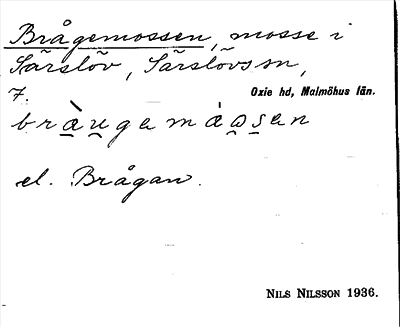 Brågemossen, mosse i
Särslöv, Särslövs sn,
7. Oxie hd, Malmöhus län.
bràu̯gemá̯ɷsen
el. Brågan.
NILS NILSSON 1936.